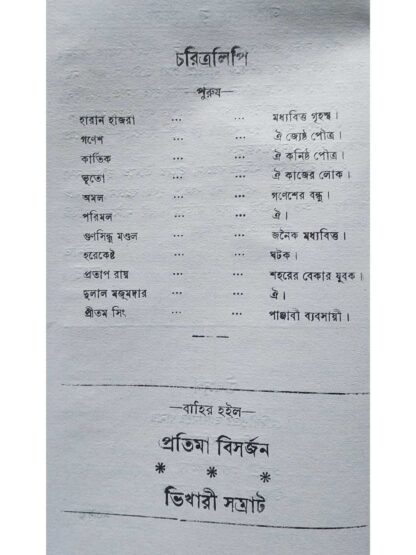 চরিত্রলিপি
—পুরুষ—
হারান হাজরা ... ... মধ্যবিত্ত গৃহস্থ।
গণেশ ... ... ঐ জ্যেষ্ঠ পৌত্র।
কার্তিক ... ... ঐ কনিষ্ঠ পৌত্র।
ভূতো ... ... ঐ কাজের লোক।
অমল ... ... গণেশের বন্ধু।
পরিমল ... ... ঐ।
গুণসিন্ধু মণ্ডল ... ... জনৈক মধ্যবিত্ত।
হরেকেষ্ট ... ... ঘটক।
প্রতাপ রায় ... ... শহরের বেকার যুবক।
দুলাল মজুমদার ... ... ঐ।
প্রীতম সিং ... ... পাঞ্জাবী ব্যবসায়ী।
—বাহির হইল—
প্রতিমা বিসর্জন
* * *
ভিখারী সম্রাট